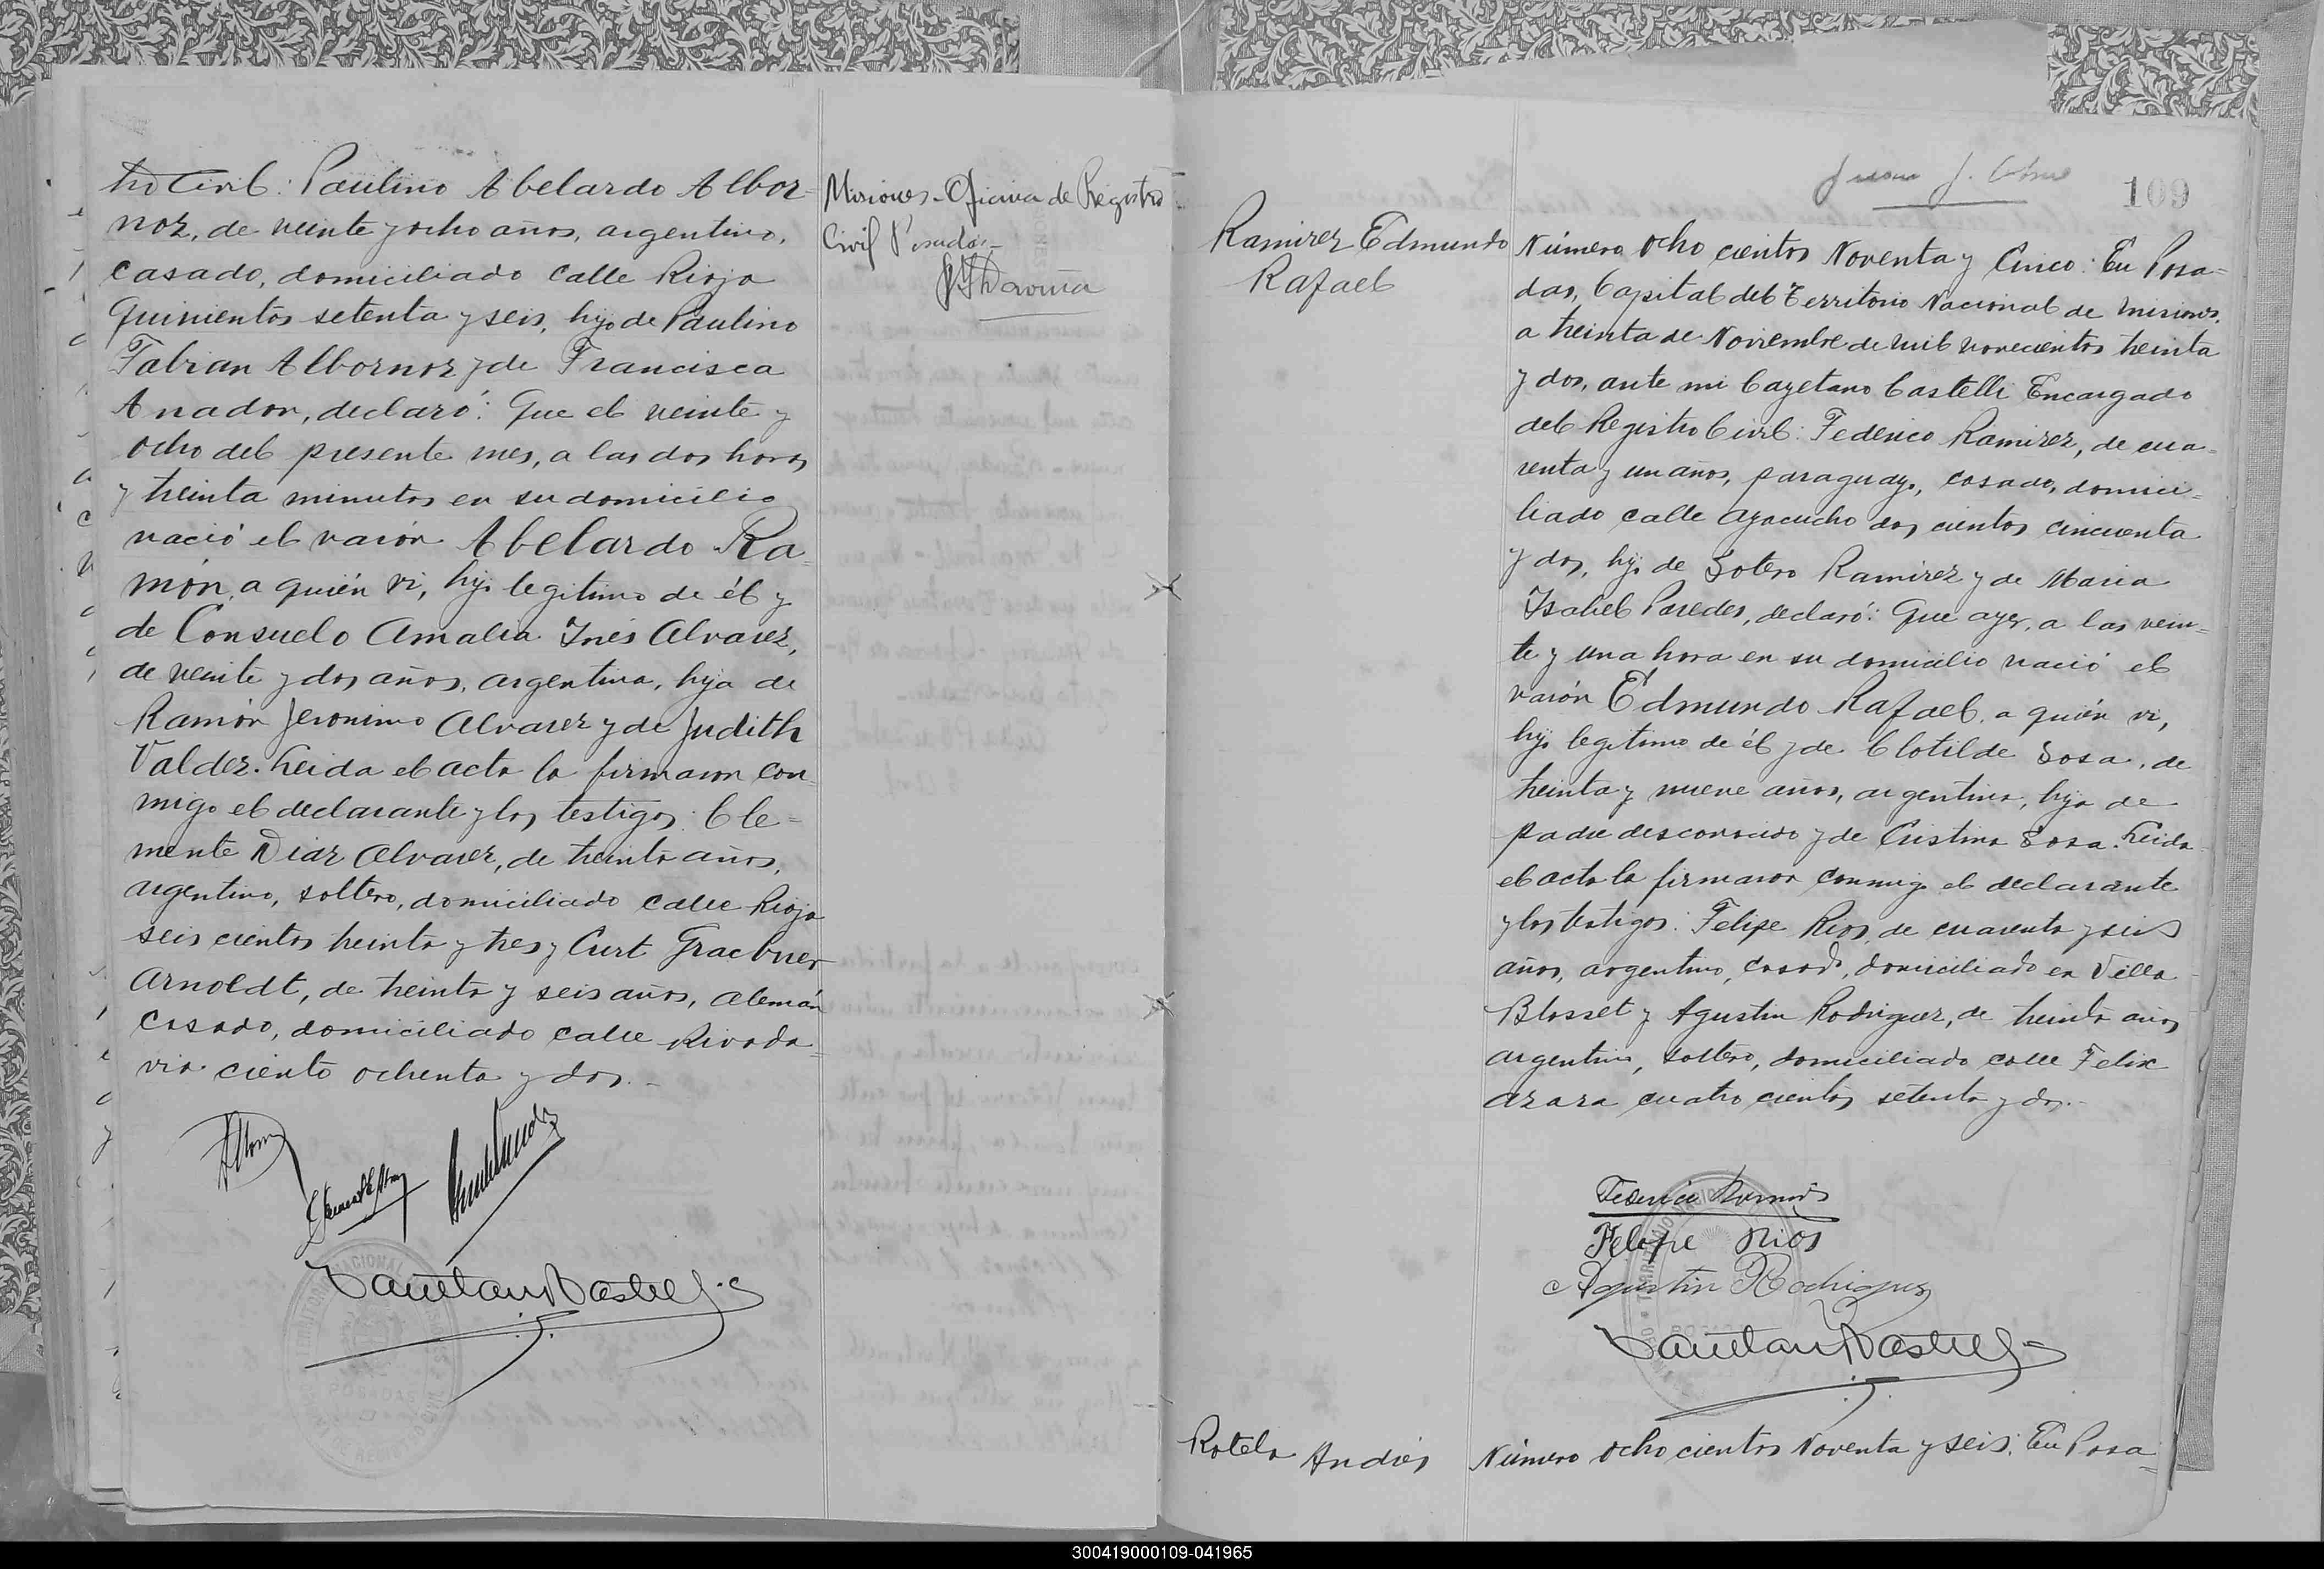 tro Civil: Paulino Abelardo Albor-
noz, de veinte y ocho años, argentino,
casado, domiciliado calle Rioja
Quinientos setenta y seis, hijo de Paulino
Fabian Albornoz y de Francisca
Anador, declaró: Que el veinte y
ocho del presente mes, a las dos horas
y treinta minutos en su domicilio
nació el varón Abelardo Ra-
món, a quién vi, hijo legitimo de él y
de Consuelo Amalia Inés Alvarez,
de veinte y dos años, argentina, hija de
Ramón Jeronimo Alvarez y de Judith
Valdez. Leida el acta la firmaron con-
migo el declarante y los testigos: Cle-
mente Diaz Alvarez, de treinta años,
argentino, soltero, domiciliado calle Rioja
seis cientos treinta y tres y Curt Graebner
Arnoldt, de treinta y seis años, alemán
casado, domiciliado calle Rivada-
via ciento ochenta y dos.-
Misiones - Oficina de Registro
Civil Posadas-
POSADAS
109
Ramirez Edmundo
Rafael
Número ocho cientos Noventa y Cinco: En Posa-
das, Capital del Territorio Nacional de Misiones,
a treinta de Noviembre de mil novecientos treinta
y dos, ante mi Cayetano Castelli Encargado
del Registro Civil: Federico Ramirez, de cua-
renta y un años, paraguayo, casado, domici-
liado calle Ayacucho dos cientos cincuenta
y dos, hijo de Sotero Ramirez y de Maria
Isabel Paredes, declaró: Que ayer, a las vein-
te y una hora en su domicilio nació el
varón Edmundo Rafael, a quién vi,
hijo legitimo de él y de Clotilde Sosa, de
treinta y nueve años, argentina, hija de
padre desconocido y de Cristina Sosa. Leida
el acta la firmaron conmigo el declarante
y los testigos: Felipe Rios, de cuarenta y seis
años, argentino, casado, domiciliado en Villa
Blosset y Agustin Rodriguez, de treinta años
argentino, soltero, domiciliado calle Felix
Azara cuatro cientos setenta y dos.-
Federico Ramirez
Felipe Rios
Agustin Rodriguez
Rotela Andrés
Número ocho cientos Noventa y seis: En Posa-
300419000109-041965